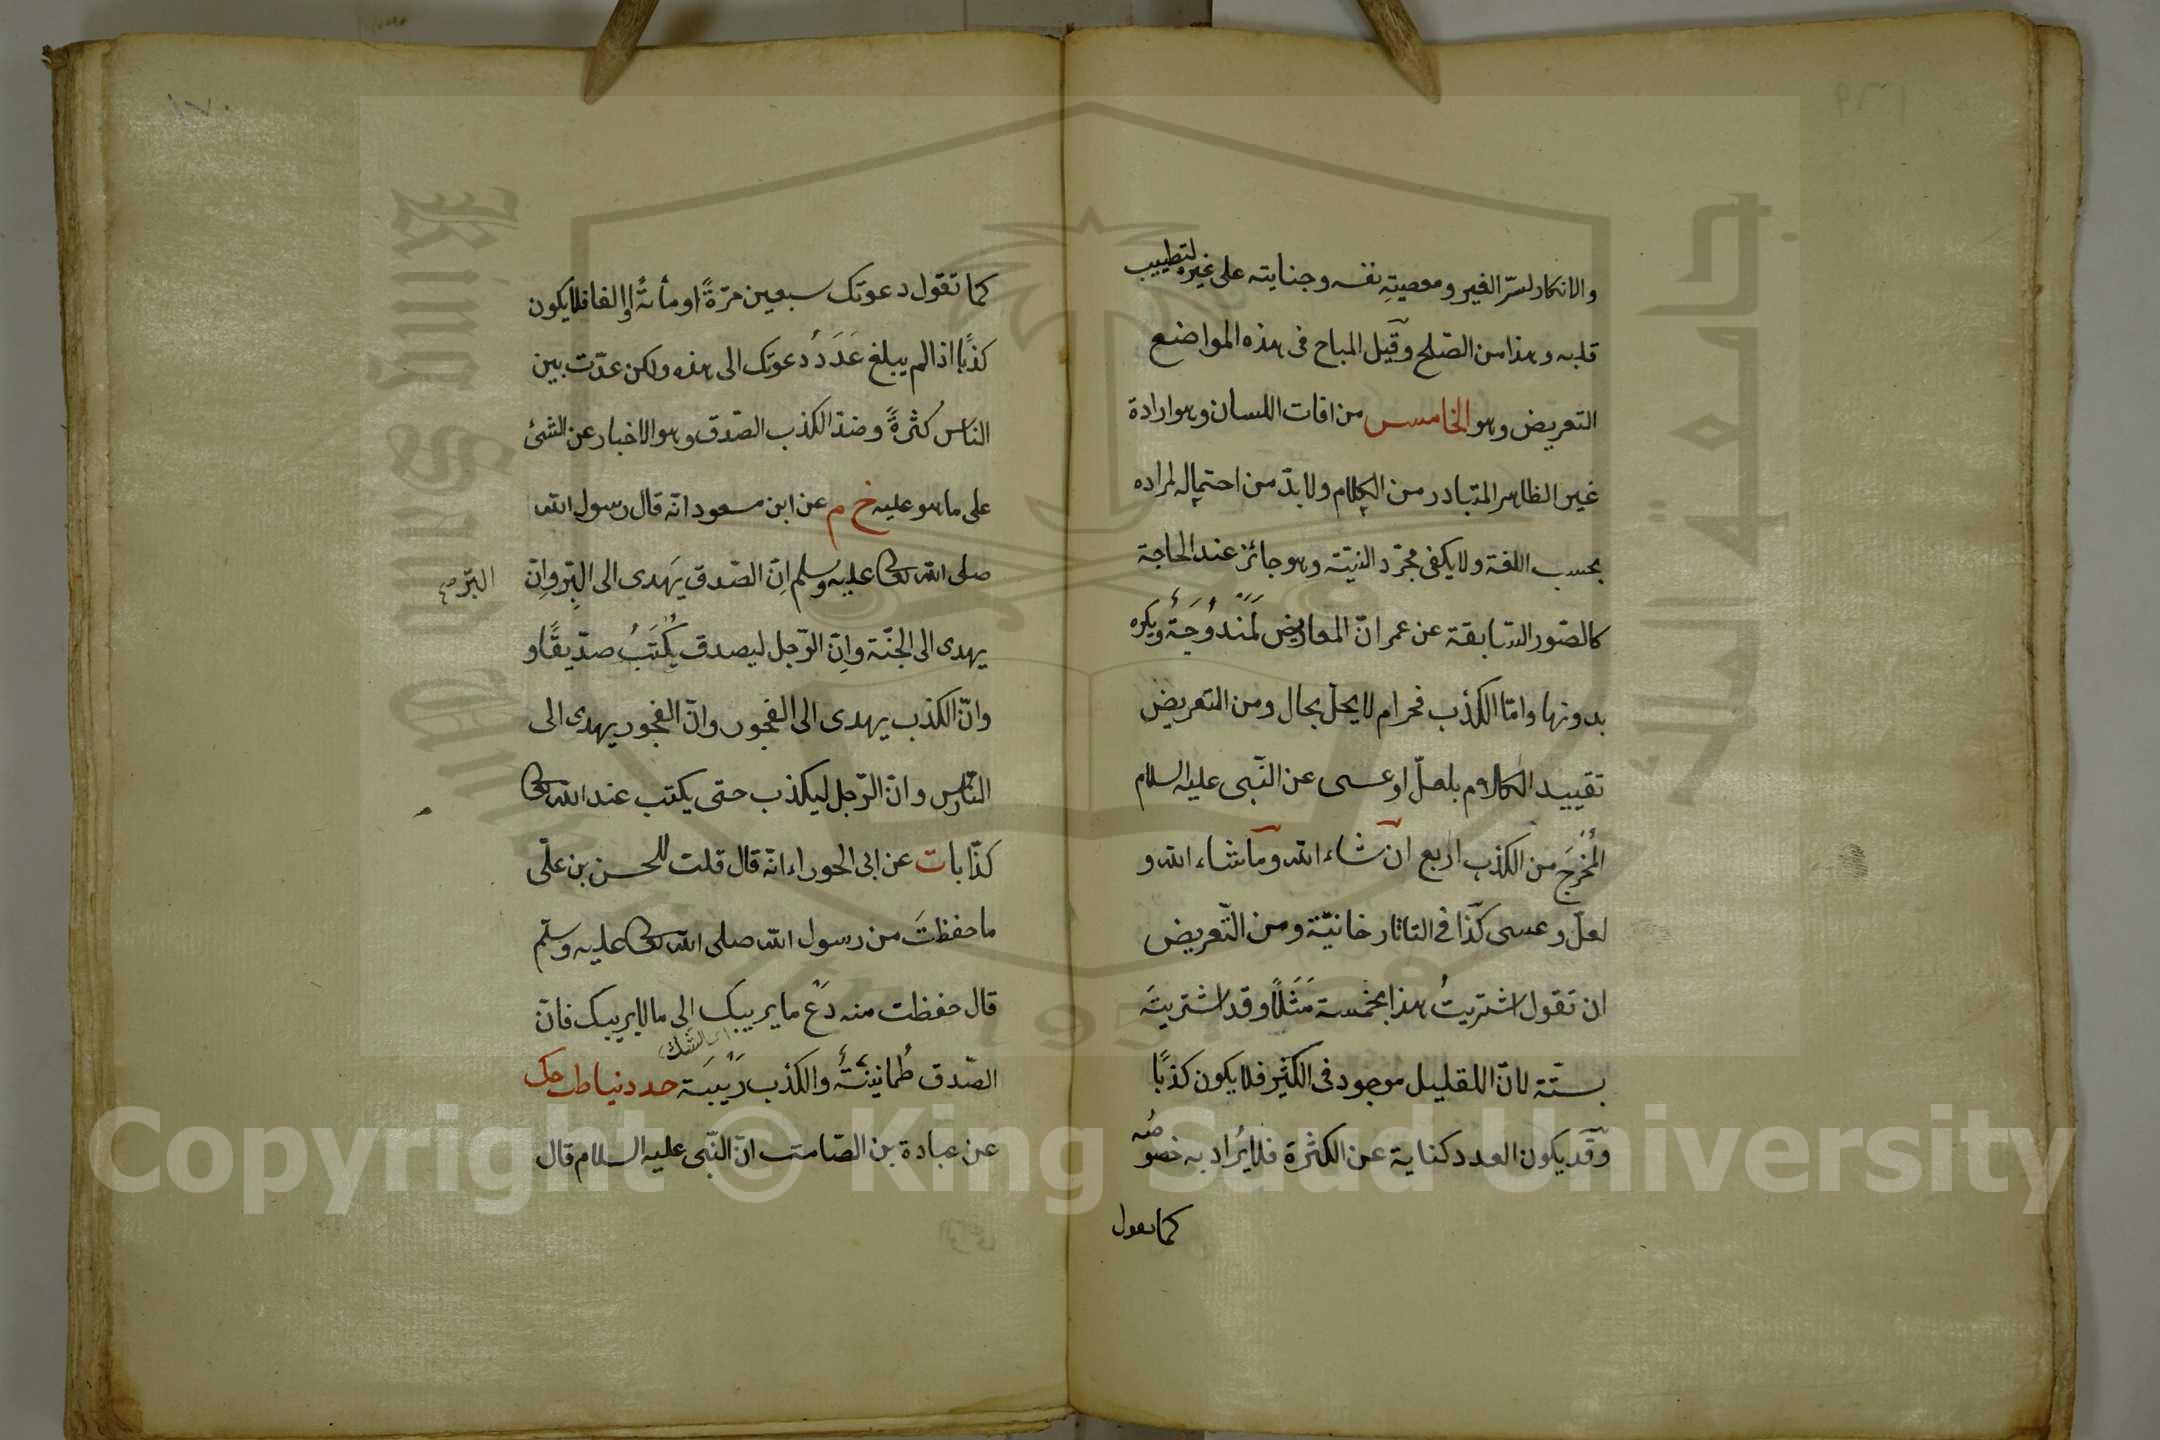 ١٦٩
والانكار لسرّ الغير ومعصيته نفسه وجنايته على غيره لتطييب
قلبه وهذا من الصّلح وقيل المباح فى هذه المواضع
التعريض وهو الخامس من افات اللسان وهو ارادة
غير الظاهر المتبادر من الكلام ولا بدّ من احتماله لمراده
بحسب اللغة ولا يكفى مجرّد النيّة وهو جائز عند الحاجة
كالصّور السّابقة عن عمر انّ المعاريض لمندُوحَةً ويكره
بدونها وامّا الكذب فحرام لا يحلّ بحال ومن التعريض
تقييد الكلام بلعلّ او عسى عن النّبى عليه السلام
المُخْرَجَ من الكذب اربع ان شاء الله وما شاء الله و
لعلّ وعسى كذا فى التاتارخانيّة ومن التّعريض
ان تقول اشتريتُ هذا بخمسة مَثَلًا وقد اشتريتَه
بستّة لانّ القليل موجود فى الكثير فلا يكون كذبًا
وقد يكون العدد كناية عن الكثرة فلا يُراد به خصوصُه
كما تقول
١٧٠
كما تقول دعوتك سبعين مرّةً او مأئةً او الفا فلا يكون
كذبًا اذا لم يبلغ عَدَدُ دعوتك الى هذه ولكن عدّت بين
الناس كُثْرةً وضدّ الكذب الصّدق وهو الاخبار عن الشئ
على ما هو عليه خ م عن ابن مسعود انّه قال رسول الله
صلى الله تعالى عليه وسلم اِنّ الصّدق يَهدى الى البِرّ وانّ
البرّ صح
يهدى الى الجنّة واِنّ الرّجل ليصدق يُكْتَبُ صدّيقًا و
وانّ الكذب يهدى الى الفجور وانّ الفجور يهدى الى
النّار وانّ الرّجل ليكذب حتى يكتب عند الله تعالى
كذّابا ت عن ابى الحوراء انّه قال قلت للحسن بن علّى
ما حفظتَ من رسول الله صلى الله تعالى عليه وسلّم
قال حفظت منه دَعْ ما يريبك الى ما لا يريبك فانّ
اى الشكّ
الصّدق طُمانينَةٌ والكذب رَيْبَة حد دنيا طب حك
عن عبادة بن الصّامت انّ النّبى عليه السلام قال
King Saud University
1957
Copyright © King Saud University